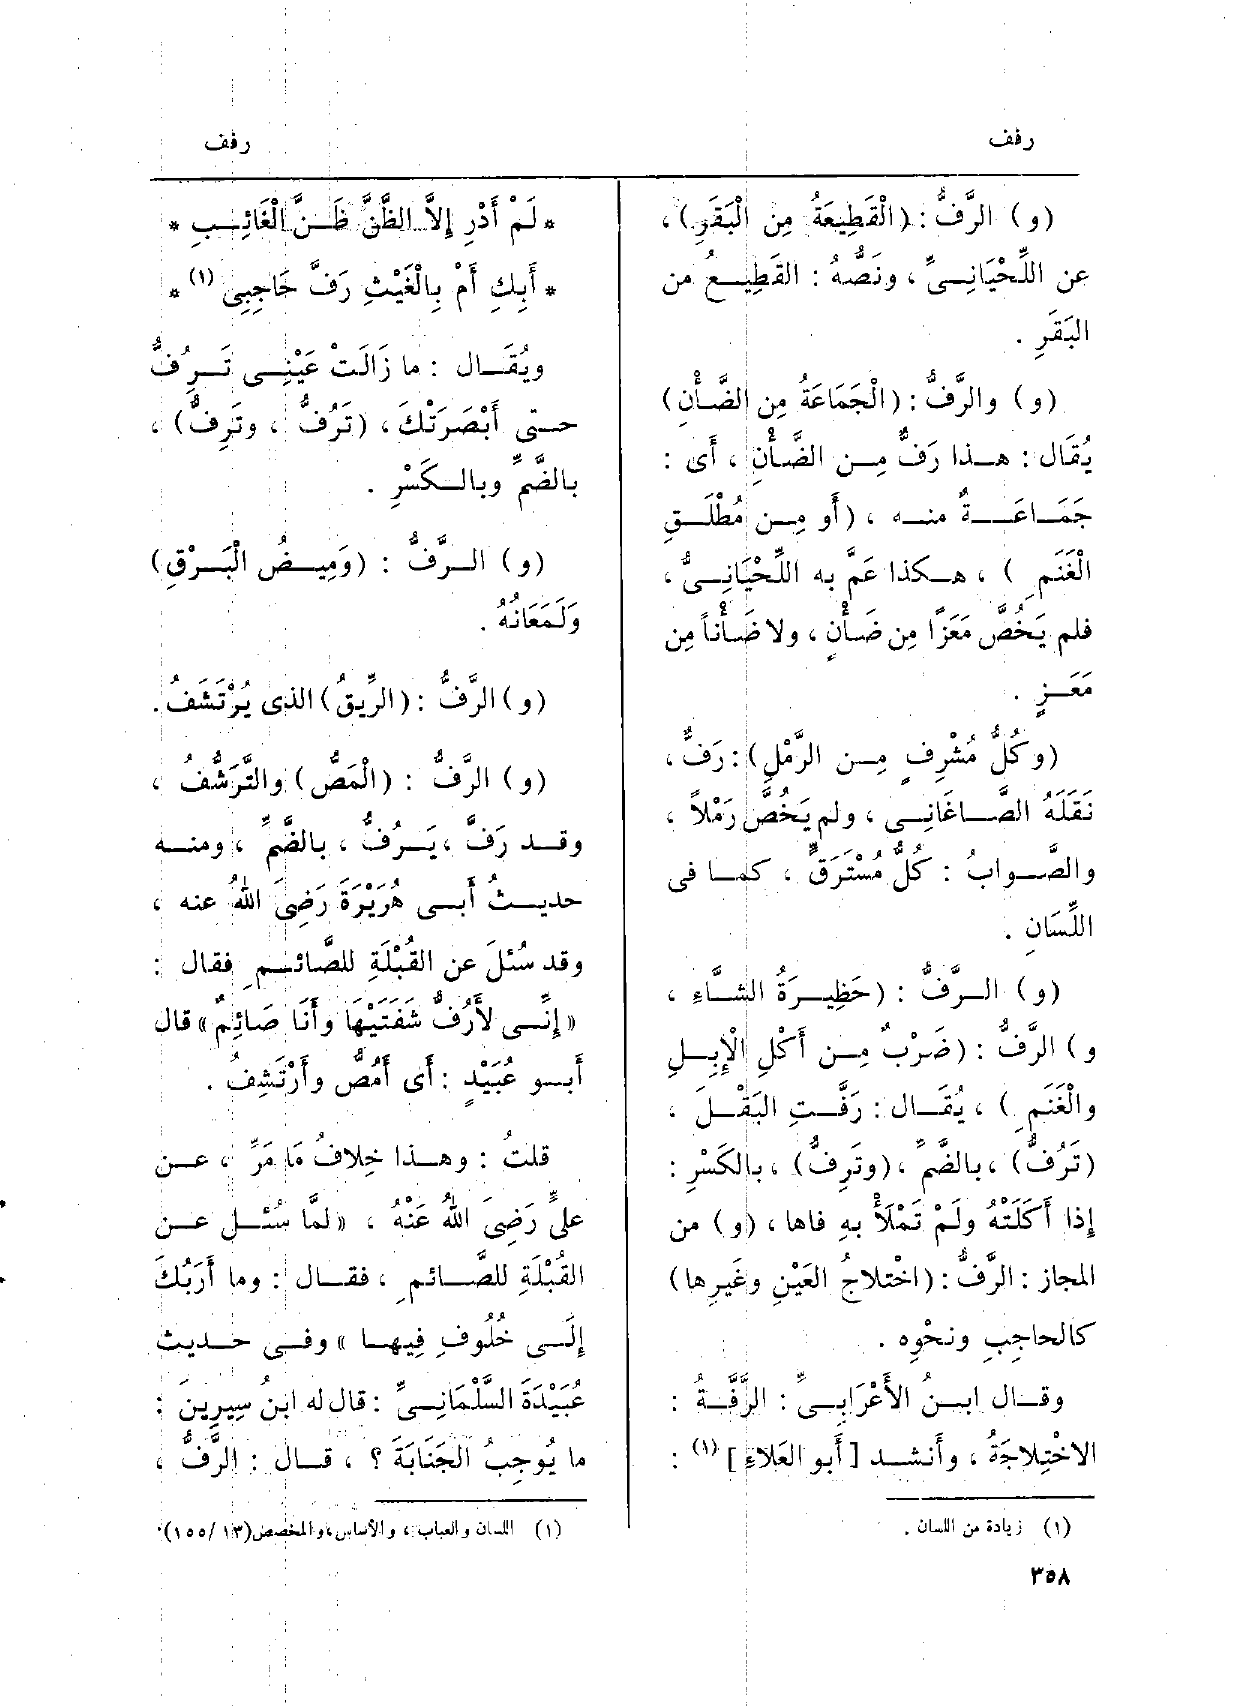 رفف
رفف
(و) الرَّفُّ : (الْقَطِيعَةُ مِن الْبَقَرِ) ،
عن اللِّحْيَانِىِّ ، ونَصُّهُ : القَطِيعُ من
البَقَرِ .
(و) والرَّفُّ : (الْجَمَاعَةُ مِن الضَّأْنِ)
يُقَال : هذا رَفٌّ مِن الضَّأْنِ ، أَى :
جَمَاعَةٌ منه ، (أَو مِن مُطْلَقِ
الْغَنَمِ ) ، هكذا عَمَّ به اللِّحْيَانِىُّ ،
فلم يَخُصَّ مَعَزًا مِن ضَأْنٍ ، ولا ضَأْناً مِن
مَعَزٍ .
(وكُلُّ مُشْرِفٍ مِن الرَّمْلِ) : رَفٌّ ،
نَقَلَهُ الصَّاغَانِى ، ولم يَخُصَّ رَمْلاً ،
والصَّوابُ : كُلُّ مُسْتَرَقٍّ ، كما فى
اللِّسَانِ .
(و) الرَّفُّ : (حَظِيرَةُ الشَّاءِ ،
و) الرَّفُّ : (ضَرْبٌ مِن أَكْلِ الْإِبِلِ
والْغَنَمِ ) ، يُقَال : رَفَّتِ البَقْلَ ،
(تَرُفُّ) ، بالضَّمِّ ، (وتَرِفُّ) ، بالكَسْرِ :
إذا أَكَلَتْهُ ولَمْ تَمْلَأْ بهِ فاها ، (و) من
المجاز : الرَّفُّ : (اخْتلاجُ العَيْنِ وغَيرِها)
كالحاجِبِ ونحْوِه .
وقال ابنُ الأَعْرَابِىِّ : الرَّفَّةُ :
الاخْتِلاجَةُ ، وأَنشد [أَبو العَلاءِ] (١) :
(١) زيادة من اللسان .
٣٥٨
* لَمْ أَدْرِ إِلاَّ الظَّنَّ ظَنَّ الْغَائِبِ *
* أَبِكِ أَمْ بِالْغَيْثِ رَفَّ حَاجِبِى (١) *
ويُقَال : ما زَالَتْ عَيْنِى تَرِفُّ
حتى أَبْصَرَتْكَ ، (تَرُفُّ ، وتَرِفُّ) ،
بالضَّمِّ وبالكَسْرِ .
(و) الرَّفُّ : (وَمِيضُ الْبَرْقِ)
وَلَمَعَانُهُ .
(و) الرَّفُّ : (الرِّيقُ) الذى يُرْتَشَفُ .
(و) الرَّفُّ : (الْمَصُّ) والتَّرَشُّفُ ،
وقد رَفَّ ، يَرُفُّ ، بالضَّمِّ ، ومنه
حديثُ أَبى هُرَيْرَةَ رَضِىَ اللهُ عنه ،
وقد سُئلَ عن القُبْلَةِ للصَّائمِ فقال :
«إِنِّى لأَرُفُّ شَفَتَيْهَا وأَنَا صَائِمٌ» قال
أَبو عُبَيْدٍ : أَى أَمُصُّ وأَرْتَشِفُ .
قلتُ : وهذا خِلافُ مَا مَرَّ ، عن
علىٍّ رَضِىَ اللهُ عَنْهُ ، «لمَّا سُئل عن
القُبْلَةِ للصَّائمِ ، فقال : وما أَرَبُكَ
إِلَى خُلُوفِ فِيها» وفى حديث
عَبِيْدَةَ السَّلْمَانِىِّ : قال له ابنُ سِيرِينَ :
ما يُوجِبُ الجَنَابَةَ ؟ ، قال : الرَّفُّ ،
(١) اللسان والعباب ، والأساس ، والمخصص (١٣/١٥٥) .